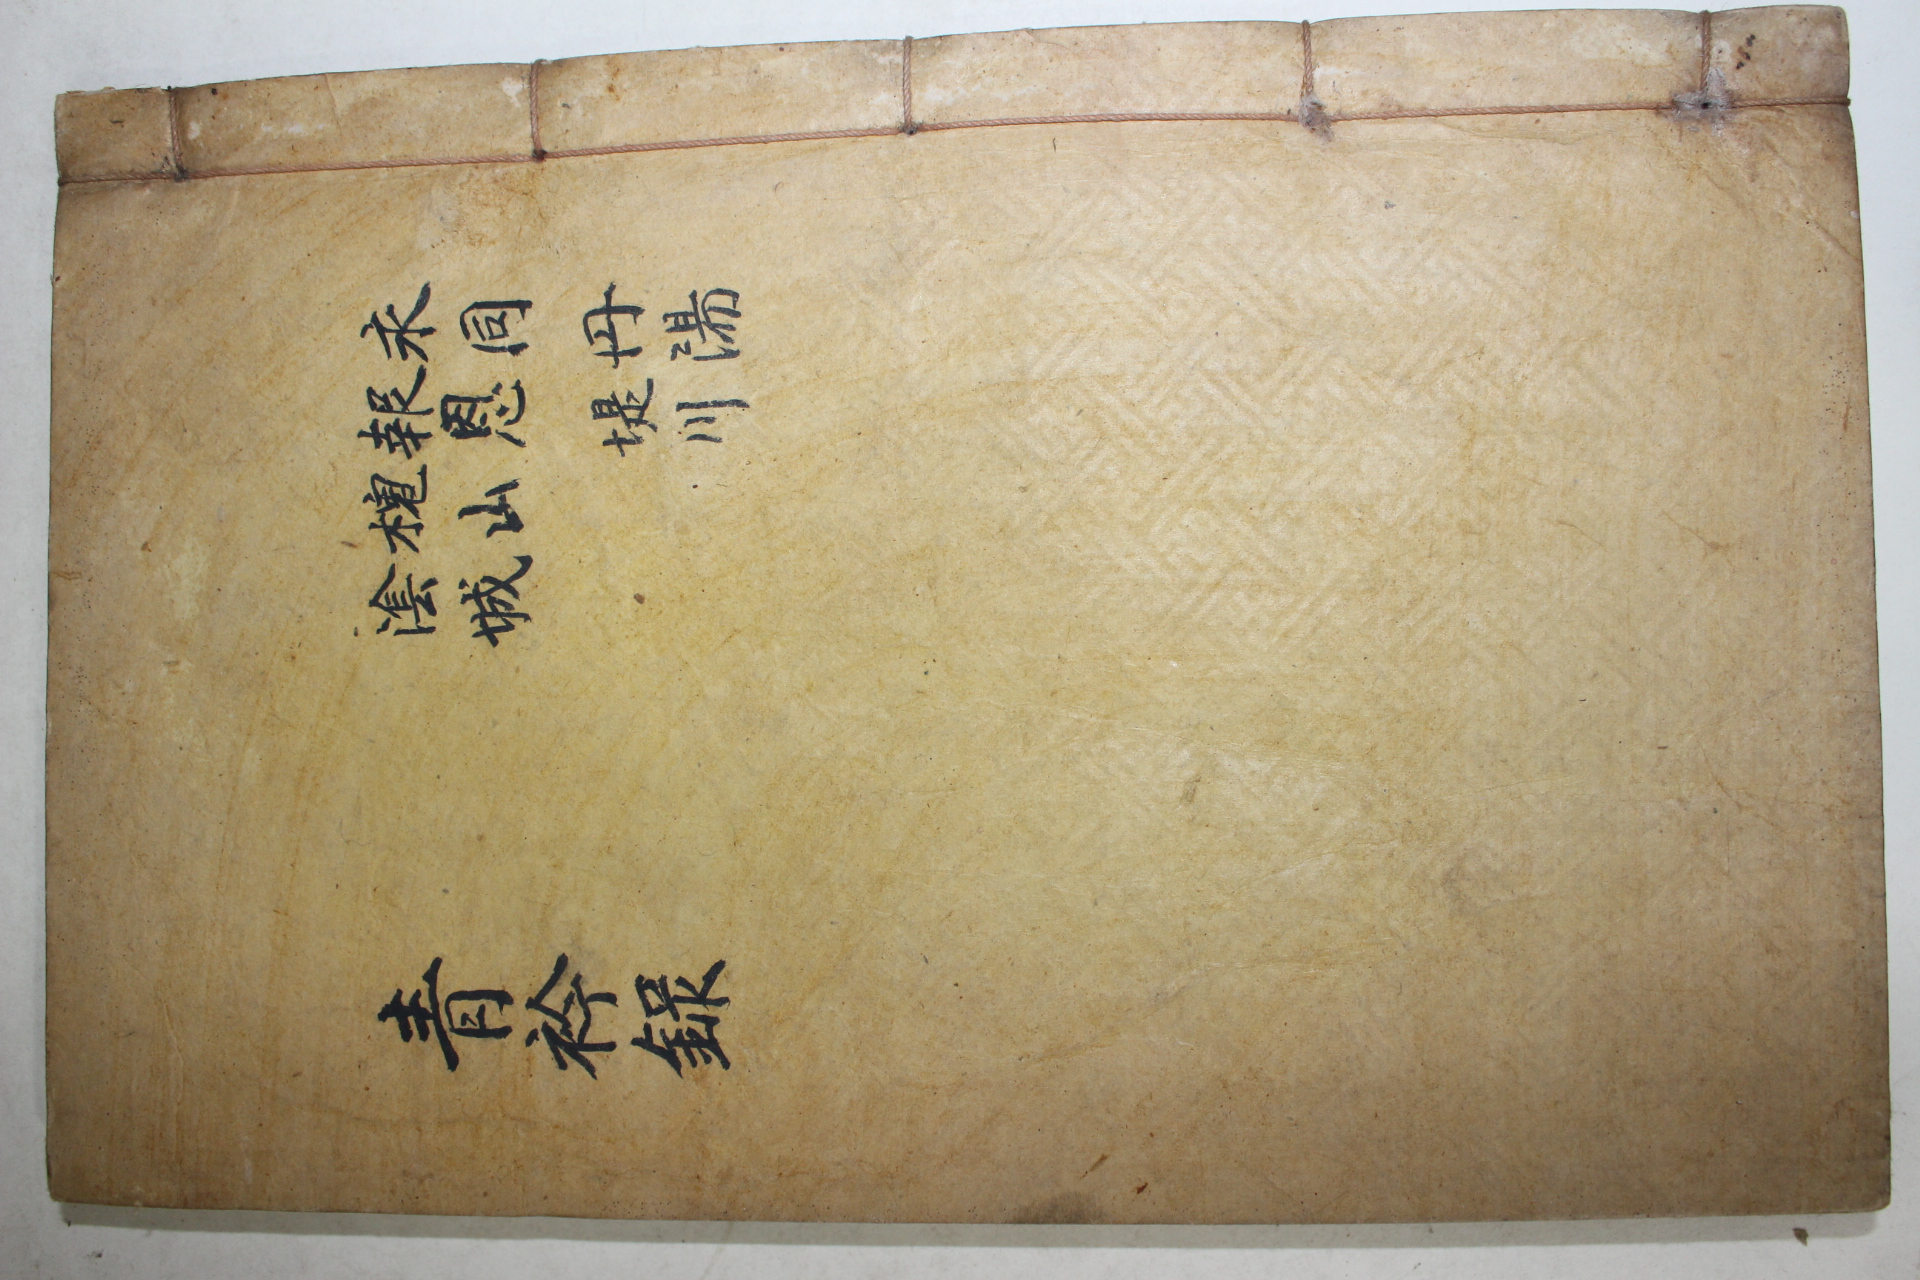 永同 丹陽
報恩 堤川
槐山
陰城
青衿録